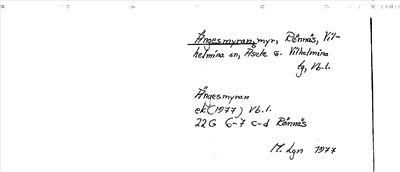 Ängesmyran, myr, Bönnäs, Vil-
helmina sn, Åsele o. Vilhelmina
tg, Vb.l.
Ängesmyran
ek (1977) Vb.l.
22G 6-7 c-d Bönnäs
M. Lgn 1977